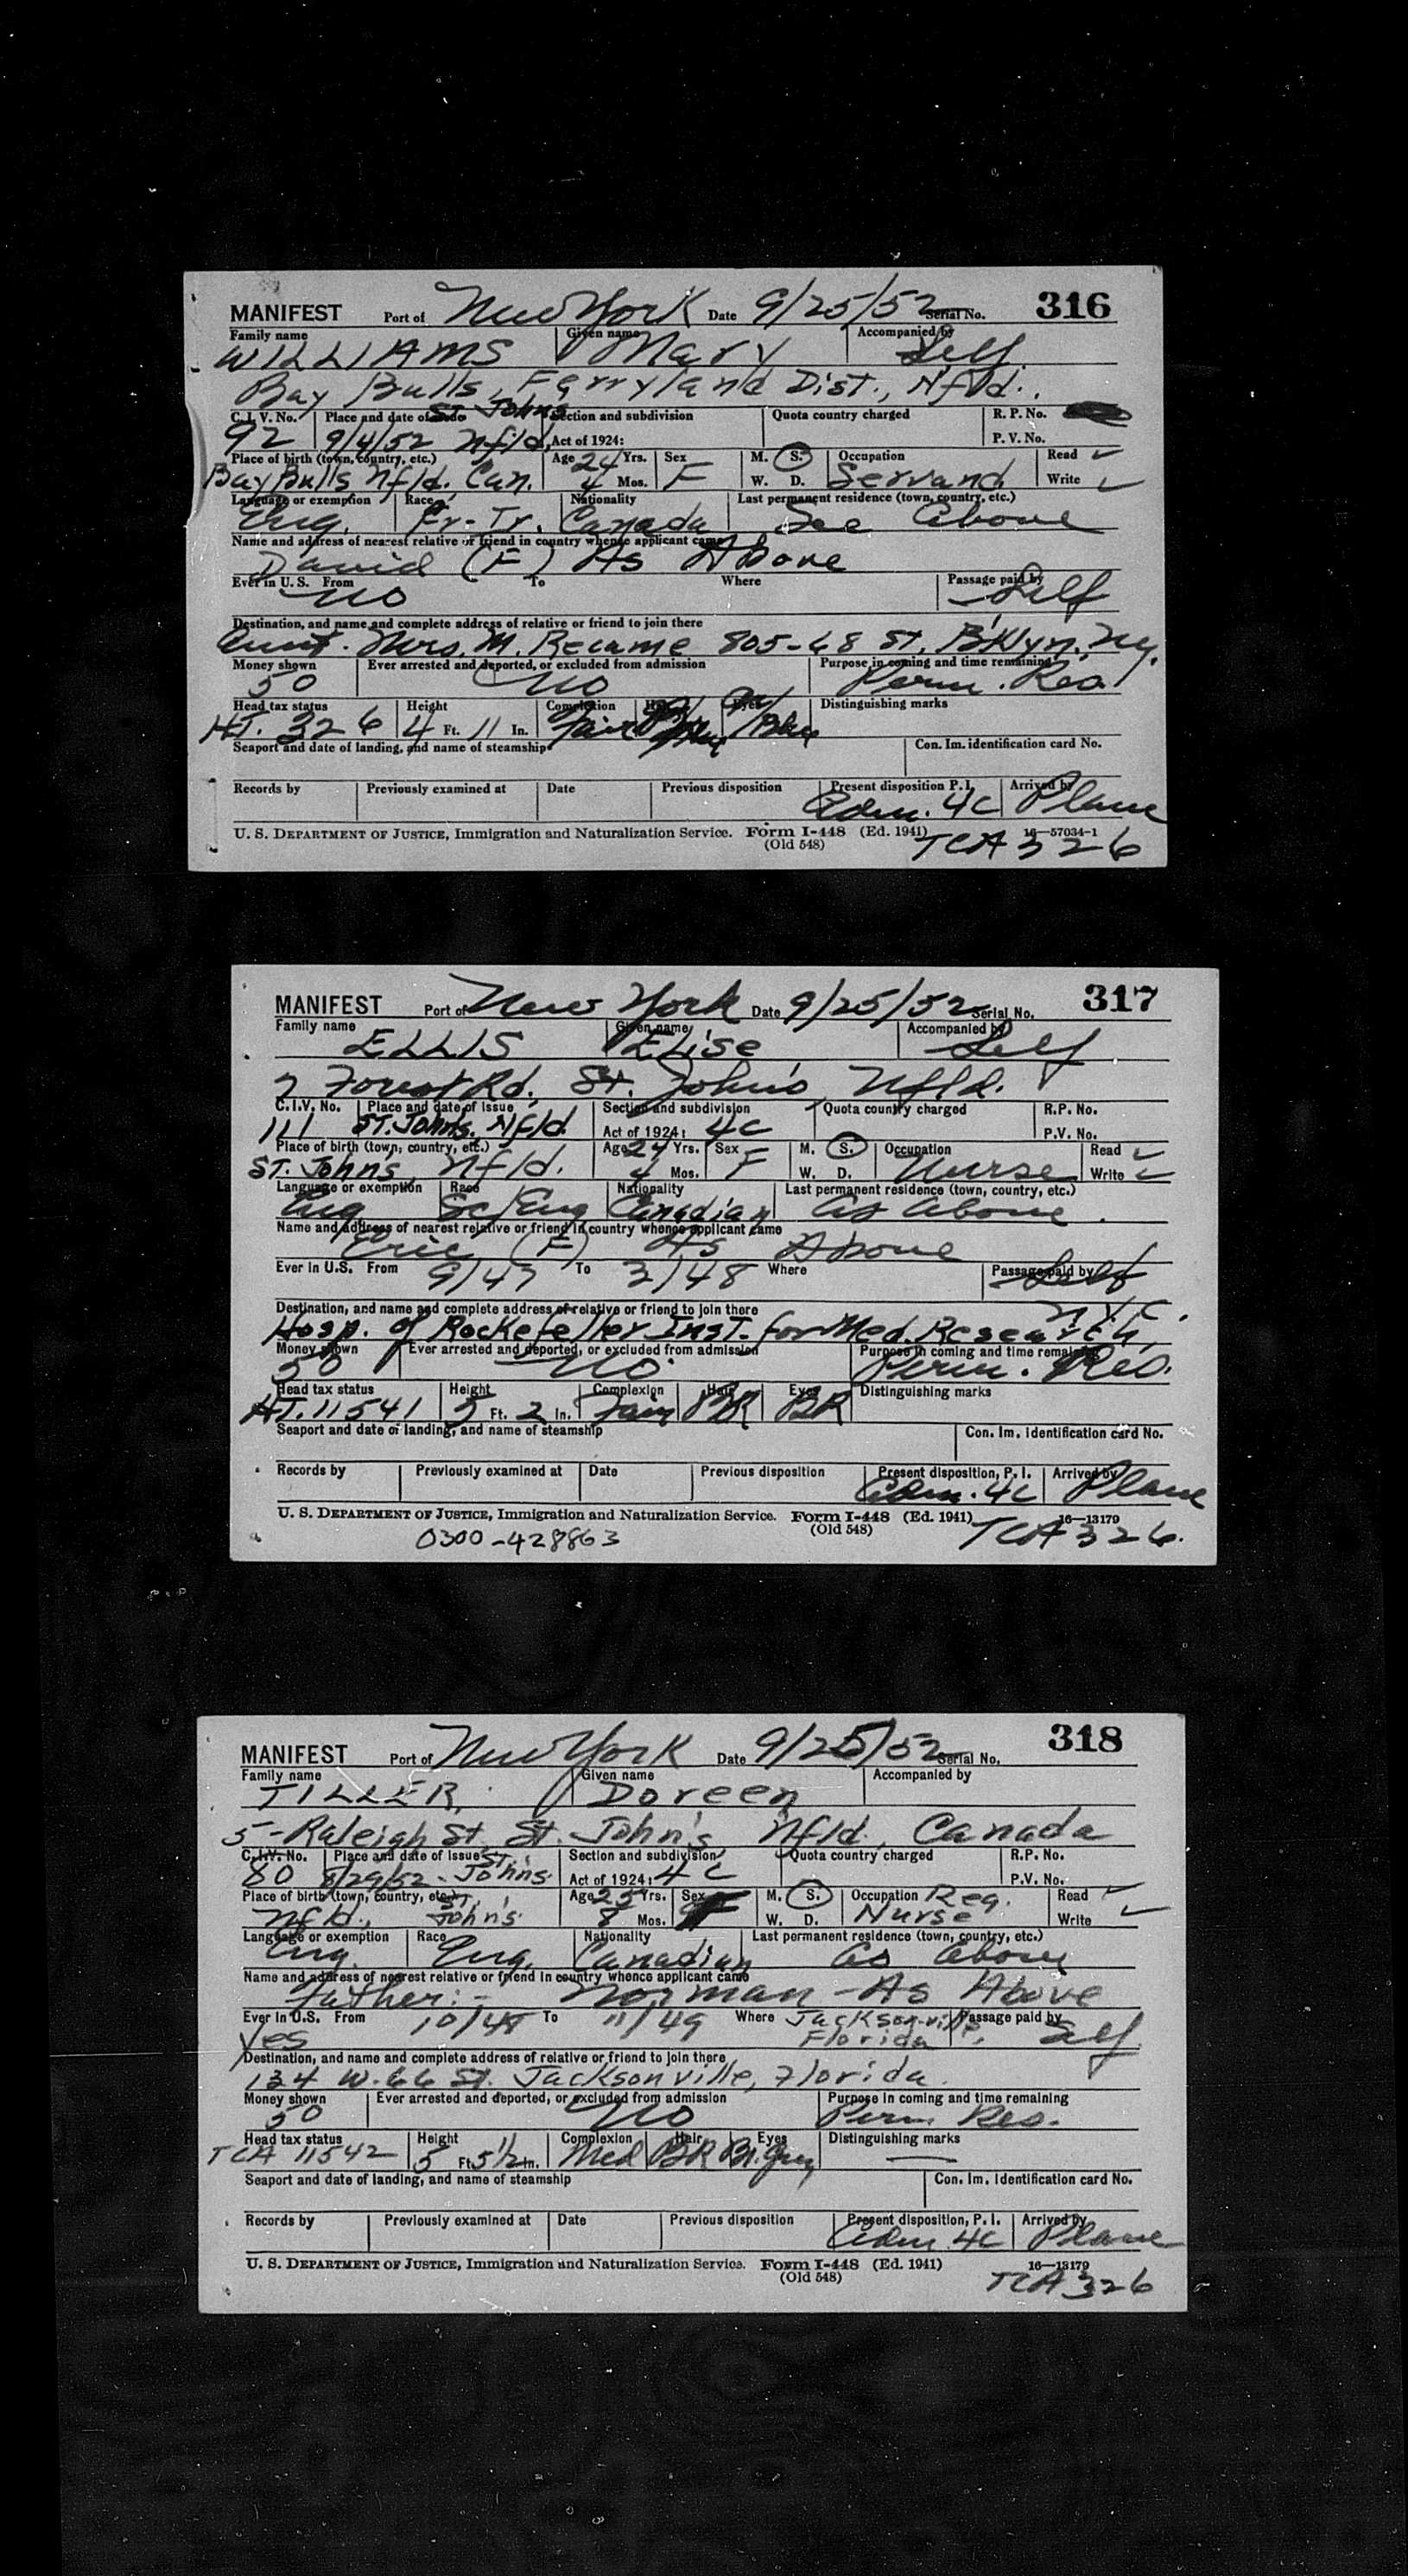 MANIFEST Port of New York Date 9/25/52 Serial No. 316
Family name Given name Accompanied by
WILLIAMS Mary Self
Bay Bulls, Ferryland Dist., Nfld.
C. I. V. No. Place and date of St. Johns Section and subdivision Quota country charged R. P. No.
92 9/4/52 Nfld, Act of 1924: P. V. No.
Place of birth (town, country, etc.) Age 24 Yrs. Sex M. S. Occupation Read ✓
Bay Bulls Nfld. Can. 4 Mos. F W. D. Servand Write ✓
Language or exemption Race Nationality Last permanent residence (town, country, etc.)
Eng. Fr-Ir. Canada See Above
Name and address of nearest relative or friend in country whence applicant came
David (F) As Above
Ever in U. S. From To Where Passage paid by
No Self
Destination, and name and complete address of relative or friend to join there
Aunt. Mrs. M. 805-68 St. Bklyn. N.Y.
Money shown Ever arrested and deported, or excluded from admission Purpose in coming and time remaining
50 No Perm. Res.
Head tax status Height Complexion Hair Eyes Distinguishing marks
HT. 326 4 Ft. 11 In. Fair
Seaport and date of landing, and name of steamship Con. Im. identification card No.
Records by Previously examined at Date Previous disposition Present disposition P. I. Arrived by
Adm. 4C Plane
U. S. DEPARTMENT OF JUSTICE, Immigration and Naturalization Service. Form I-448 (Ed. 1941) 16—57034-1
(Old 548) TCA 326
MANIFEST Port of New York Date 9/25/52 Serial No. 317
Family name Given name Accompanied by
ELLIS Elise Self
7 Forest Rd., St. John's Nfld.
C.I.V. No. Place and date of issue Section and subdivision Quota country charged R.P. No.
111 St. Johns. Nfld. Act of 1924: 4C P.V. No.
Place of birth (town, country, etc.) Age 24 Yrs. Sex M. S. Occupation Read ✓
St. Johns Nfld. 4 Mos. F W. D. Nurse Write ✓
Language or exemption Race Nationality Last permanent residence (town, country, etc.)
Eng Sc/Eng Canadian As Above.
Name and address of nearest relative or friend in country whence applicant came
Eric (F) As Above
Ever in U.S. From 9/47 To 3/48 Where Passage paid by Self
Destination, and name and complete address of relative or friend to join there N.Y.C.
Hosp. of Rockefeller Inst. for Med. Research,
Money shown Ever arrested and deported, or excluded from admission Purpose in coming and time remaining
50 No. Perm. Res.
Head tax status Height Complexion Hair Eyes Distinguishing marks
HT. 11541 5 Ft. 2 In. Fair BR BR
Seaport and date of landing, and name of steamship Con. Im. Identification card No.
Records by Previously examined at Date Previous disposition Present disposition, P. I. Arrived by
Adm. 4C Plane
U. S. DEPARTMENT OF JUSTICE, Immigration and Naturalization Service. Form I-448 (Ed. 1941) 16—13179
(Old 548) TCA 326.
0300-428863
MANIFEST Port of New York Date 9/25/52 Serial No. 318
Family name Given name Accompanied by
TILLER, Doreen
5-Raleigh St. St. John's Nfld. Canada
C.I.V. No. Place and date of issue St. Section and subdivision Quota country charged R.P. No.
80 8/29/52 - Johns Act of 1924: 4C P.V. No.
Place of birth (town, country, etc.) St. Age 25 Yrs. Sex M. S. Occupation Reg. Read ✓
Nfld., John's 8 Mos. F W. D. Nurse Write ✓
Language or exemption Race Nationality Last permanent residence (town, country, etc.)
Eng. Eng. Canadian As Above
Name and address of nearest relative or friend in country whence applicant came
Father:- Norman - As Above
Ever in U.S. From 10/48 To 11/49 Where Jacksonville, Passage paid by
Yes Florida Self
Destination, and name and complete address of relative or friend to join there
134 W. 66 St. Jacksonville, Florida.
Money shown Ever arrested and deported, or excluded from admission Purpose in coming and time remaining
50 No Perm Res.
Head tax status Height Complexion Hair Eyes Distinguishing marks
TCA 11542 5 Ft. 5 1/2 In. Med BR Bl. Grey —
Seaport and date of landing, and name of steamship Con. Im. Identification card No.
Records by Previously examined at Date Previous disposition Present disposition, P. I. Arrived by
Adm. 4C Plane
U. S. DEPARTMENT OF JUSTICE, Immigration and Naturalization Service. Form I-448 (Ed. 1941) 16—13179
(Old 548) TCA 326